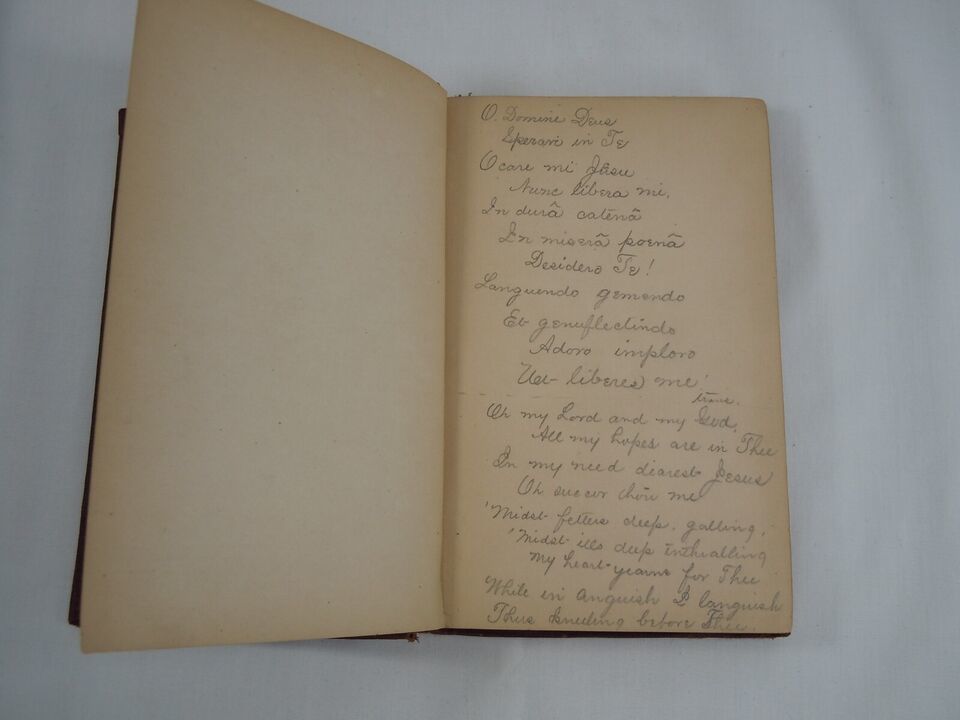 O. Domine Deus
Sperari in Te
O care mi Jesu
Nunc libera mi.
In durā catēnā
In miserā poenā
Desidero Te!
Languendo gemendo
Et genuflectindo
Adoro imploro
Ut liberes me!
trans.
Oh my Lord and my God,
All my hopes are in Thee
In my need dearest Jesus
Oh succor thou me
'Midst fetters deep, galling,
'Midst ills deep inthralling
My heart yearns for Thee
While in anguish I languish
Thus kneeling before Thee.